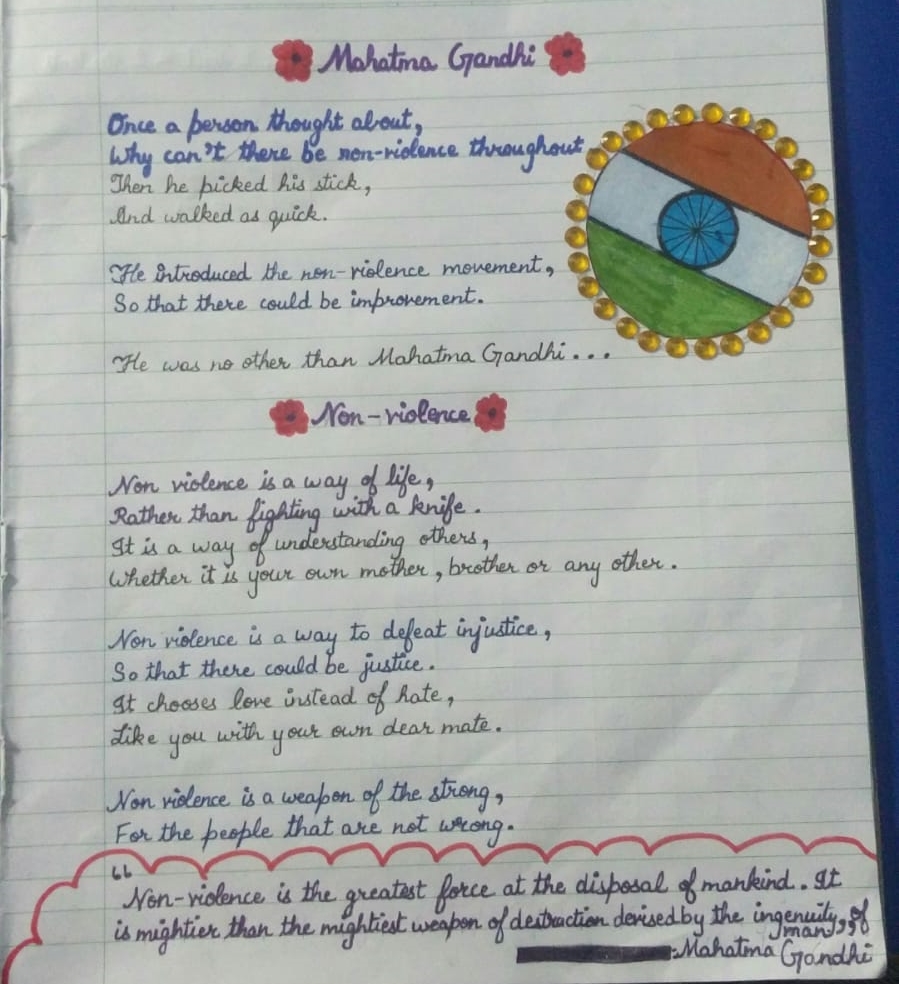 Mahatma Gandhi
Once a person thought about,
Why can't there be non-violence throughout
Then he picked his stick,
And walked as quick.
He introduced the non-violence movement,
So that there could be improvement.
He was no other than Mahatma Gandhi...
Non-violence
Non violence is a way of life,
Rather than fighting with a knife.
It is a way of understanding others,
Whether it is your own mother, brother or any other.
Non violence is a way to defeat injustice,
So that there could be justice.
It chooses love instead of hate,
Like you with your own dear mate.
Non violence is a weapon of the strong,
For the people that are not wrong.
"Non-violence is the greatest force at the disposal of mankind. It
is mightier than the mightiest weapon of destruction devised by the ingenuity of
man."
-Mahatma Gandhi